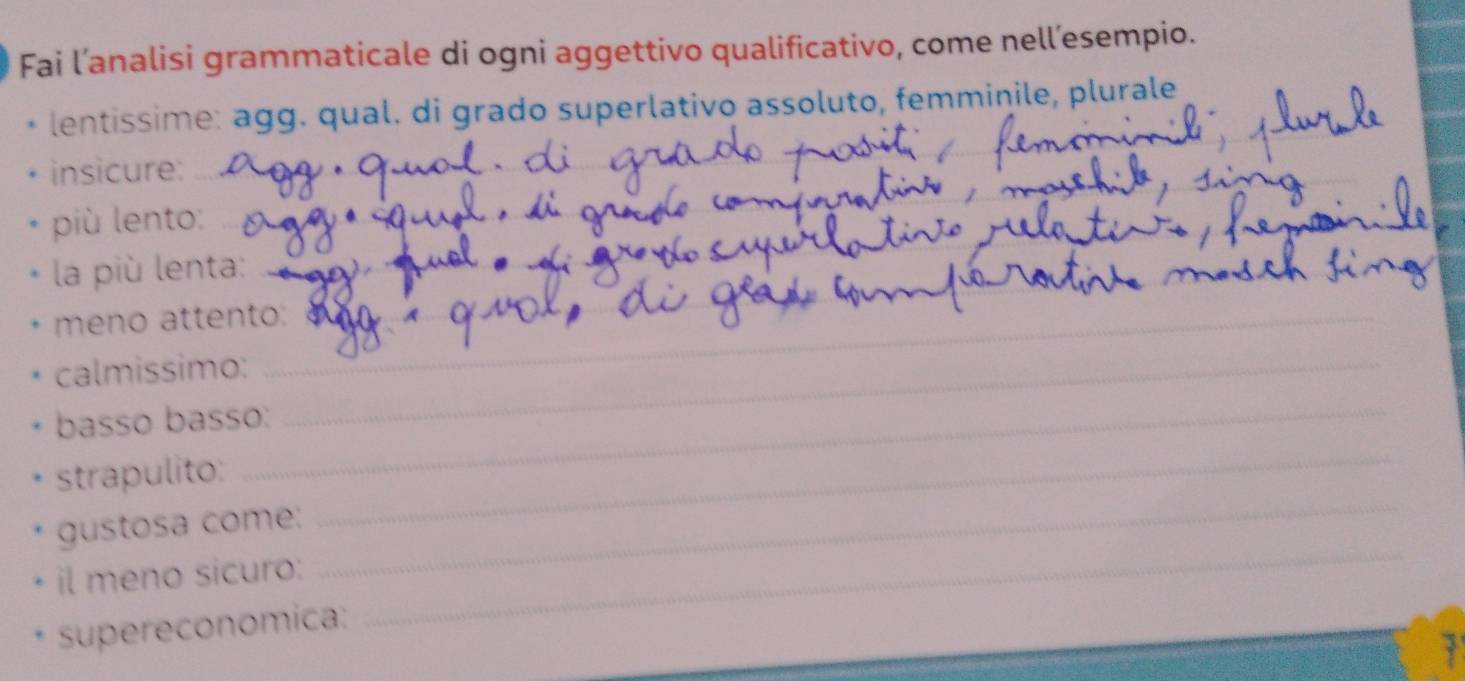 Fai l'analisi grammaticale di ogni aggettivo qualificativo, come nell'esempio.
• lentissime: agg. qual. di grado superlativo assoluto, femminile, plurale
• insicure: agg. qual. di grado positi, femminile, plurale
• più lento: agg. qual. di grado comparativo, maschile, sing
• la più lenta: agg. qual. di grado superlativo relativo, femminile,
• meno attento: agg. qual. di grado comparativo masch sing
• calmissimo:
• basso basso:
• strapulito:
• gustosa come:
• il meno sicuro:
• supereconomica: